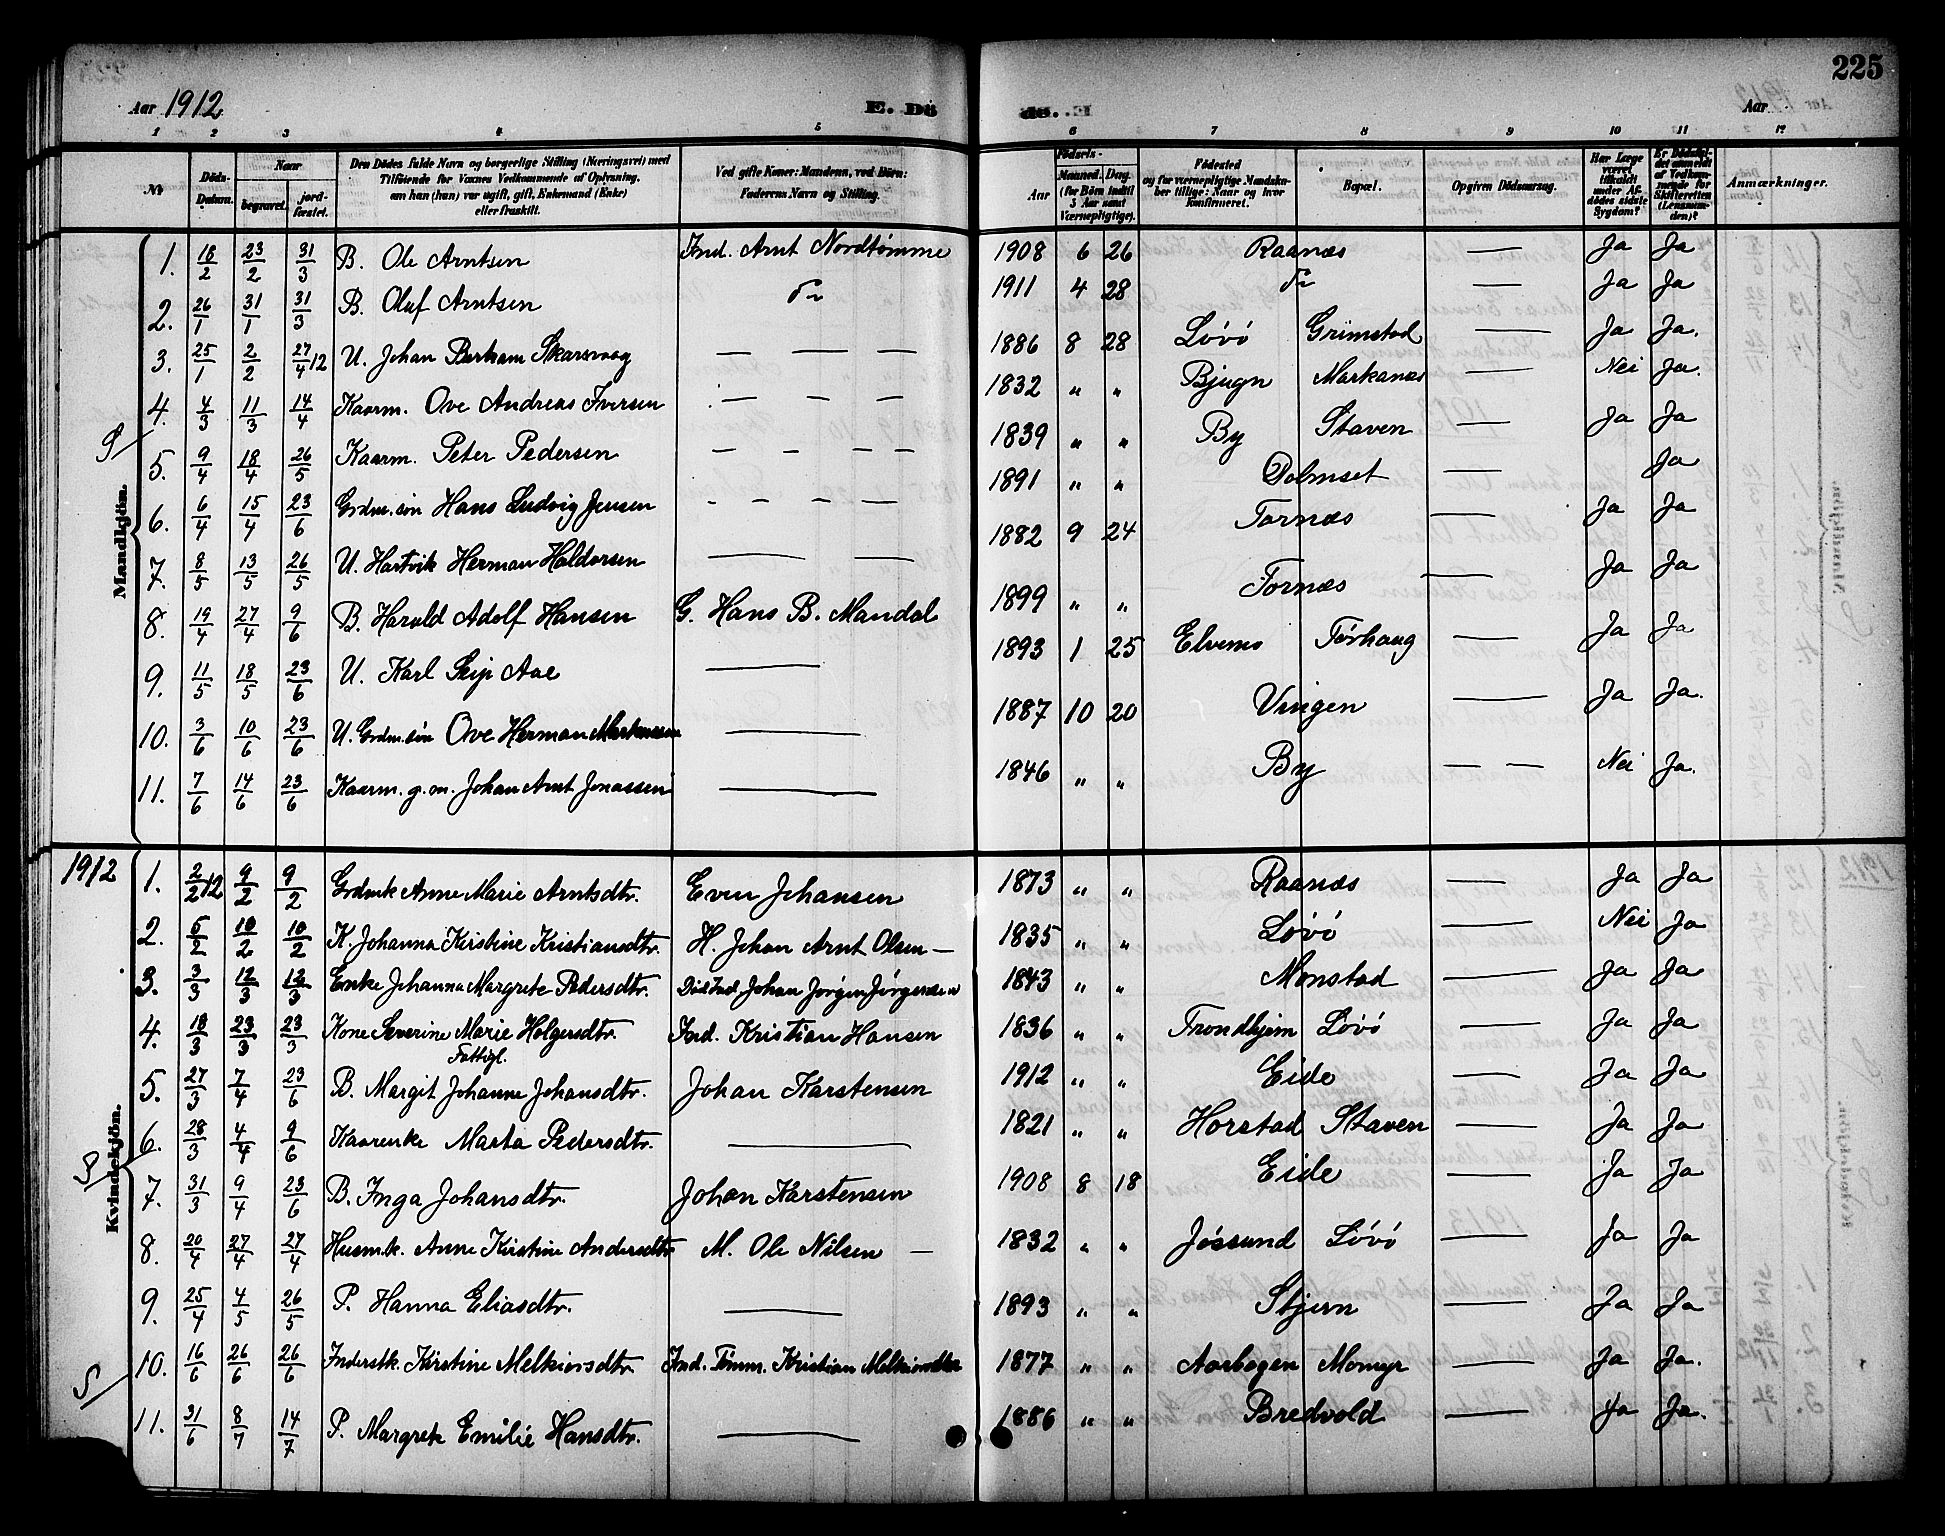 225
Aar 1912 E. Dö de. Aar
1 2 3 4 5 6 7 8 9 10 11 12
No Döds-Datum. Naar begravet. jordfæstet. Den Dödes fulde Navn og borgerlige Stilling (Næringsvei) med Tilföiende for Voxnes Vedkommende af Oplysning, om han (hun) var ugift, gift, Enkemand (Enke) eller fraskilt. Ved gifte Koner: Mandens, ved Börn: Faderens Navn og Stilling. Födsels- Aar Maaned. Dag. (for Börn indtil 5 Aar samt Værnepligtige). Födested og for værnepligtige Mandskaber tillige: Naar og hvor konfirmeret. Bopæl. Opgiven Dödsaarsag. Har Læge været tilkaldt under Afdödes sidste Sygdom? Er Dödsfaldet anmeldt af Vedkommende for Skifteretten (Lensmanden)? Anmærkninger.
Mandkjön.
1. 18/2 23/2 31/3 B. Ole Arntsen Ind. Arnt Nordtømme 1908 6 26 Raanæs — Ja Ja
2. 26/1 31/1 31/3 B. Oluf Arntsen Do 1911 4 28 Do — Ja Ja
3. 25/1 2/2 27/4 12 U. Johan Bertram Skarsvaag — — — 1886 8 28 Løvö Grimstad — Ja Ja.
4. 4/3 11/3 14/4 Kaarm. Ove Andreas Iversen — — — — 1832 " " Bjugn Markanæs — Nei Ja.
5. 9/4 18/4 26/5 Kaarm. Peter Pedersen — — — — 1839 " " By Staven — Ja Ja
6. 6/4 15/4 23/6 Grdm. sön Hans Ludvig Jensen — — — — 1891 " " Dolmset — Ja
7. 8/5 13/5 26/5 U. Hartvik Herman Haldorsen — — 1882 9 24 Tornæs — Ja Ja
8. 19/4 27/4 9/6 B. Harald Adolf Hansen G. Hans B. Mandal 1899 " " Tornæs — Ja Ja
9. 11/5 18/5 23/6 U. Karl Seip Aae — 1893 1 25 Elvenes Tørhaug — Ja Ja
10. 3/6 10/6 23/6 U. Grdm. sön Ove Herman — 1887 10 20 Vingen — Ja Ja.
11. 7/6 14/6 23/6 Kaarm. g. m. Johan Arnt Jonassen — 1846 " " By — — Nei Ja.
1912
Kvindekjön.
1. 2/2 12 9/2 9/2 Grdmk Anne Marie Arntsdtr. Even Johansen 1873 " " Raanæs — Ja Ja
2. 5/2 10/2 10/2 K. Johanna Kirstine Kristiansdtr. H. Johan Arnt Olsen — 1835 " " Løvö — Nei Ja
3. 3/3 12/3 12/3 Enke Johanna Margrete Pedersdtr. Död Ind. Johan Jørgen Jørgensen 1843 " " Monstad — Ja Ja
4. 18/3 23/3 23/3 Kone Severine Marie Holgersdtr. Ind. Kristian Hansen 1836 " " Trondhjem Løvö — Ja Ja
Fattigl.
5. 27/3 7/4 23/6 B. Margit Johanne Johansdtr. Johan Karstensen 1912 " " Eide — Ja Ja
6. 28/3 4/4 9/6 Kaarenke Marta Pedersdtr. — 1821 " " Horstad Staven — Ja Ja
7. 31/3 9/4 23/6 B. Inga Johansdtr. Johan Karstensen 1908 8 18 Eide — Ja Ja
8. 20/4 27/4 27/4 Husmk. Anne Kirstine Andersdtr M. Ole Nilsen — 1832 " " Jössund Løvö — Ja Ja
9. 25/4 4/5 26/5 P. Hanna Eliasdtr. — 1893 " " Stjern — Ja Ja
10. 16/6 26/6 26/6 Inderstk. Kirstine Melkiorsdtr. Ind. Tömm. Kristian 1877 " " Aarbogen Momyr — Ja Ja.
11. 31/6 8/7 14/7 P. Margrete Emilie Hansdtr. — 1886 " " Bredvold — Ja Ja.